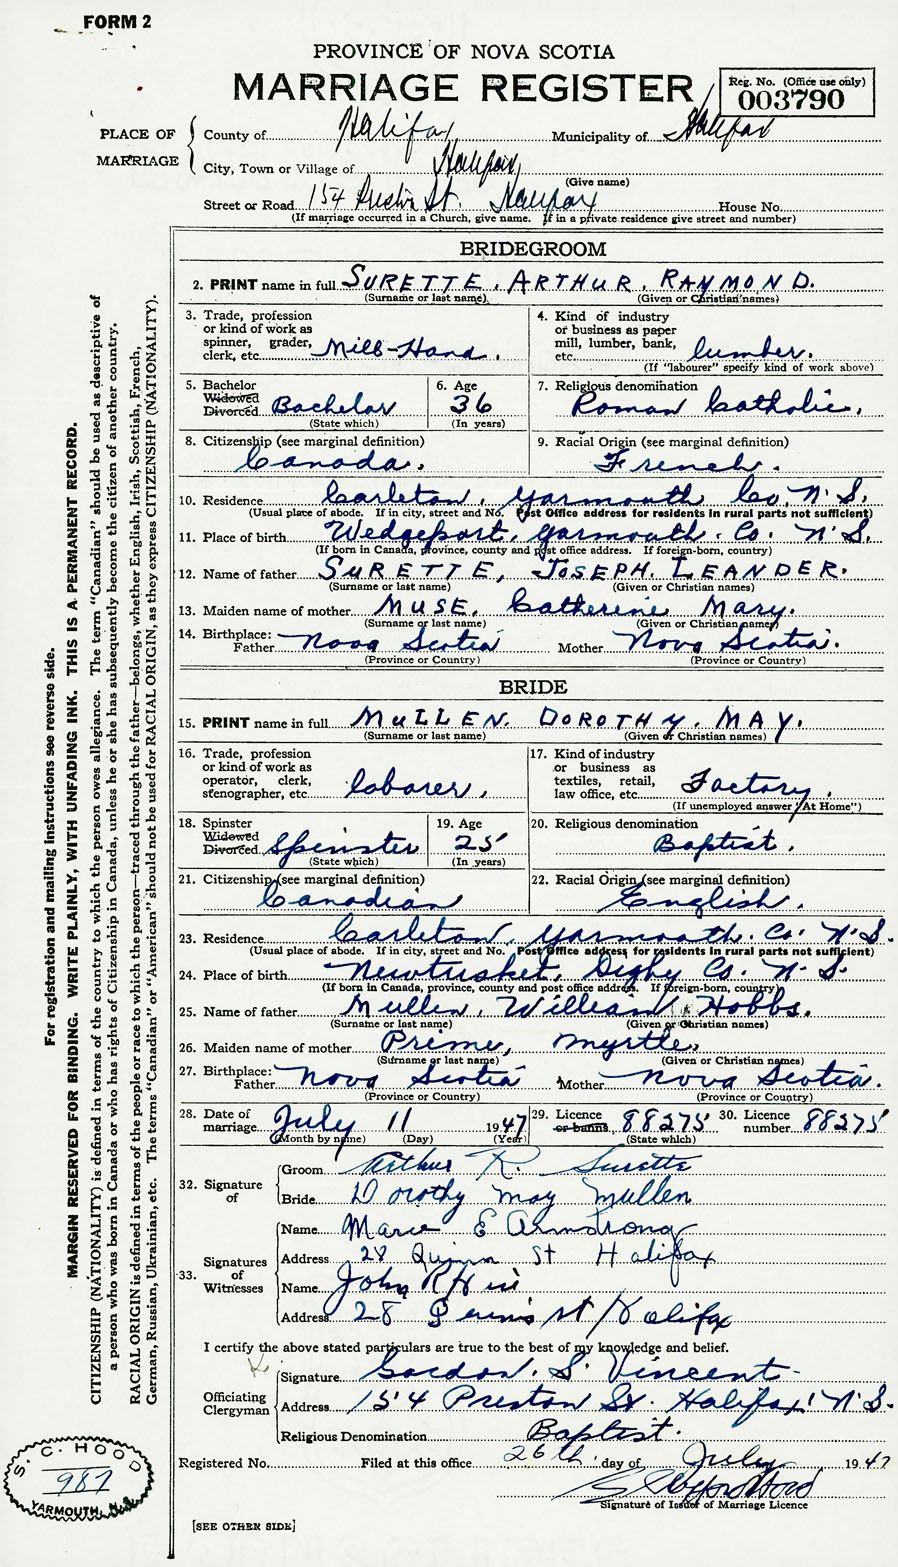 FORM 2
PROVINCE OF NOVA SCOTIA
MARRIAGE REGISTER
Reg. No. (Office use only)
003790
PLACE OF MARRIAGE
County of Halifax Municipality of Halifax
City, Town or Village of Halifax
(Give name)
Street or Road 154 Preston St. Halifax House No.
(If marriage occurred in a Church, give name. If in a private residence give street and number)
BRIDEGROOM
2. PRINT name in full SURETTE, ARTHUR, RAYMOND.
(Surname or last name) (Given or Christian names)
3. Trade, profession or kind of work as spinner, grader, clerk, etc. Mill-Hand.
4. Kind of industry or business as paper mill, lumber, bank, etc. lumber.
(If "labourer" specify kind of work above)
5. Bachelor Widowed Divorced Bachelor
(State which)
6. Age 36
(In years)
7. Religious denomination Roman Catholic.
8. Citizenship (see marginal definition) Canada.
9. Racial Origin (see marginal definition) French.
10. Residence Carleton, Yarmouth Co. N.S.
(Usual place of abode. If in city, street and No. Post Office address for residents in rural parts not sufficient)
11. Place of birth Wedgeport, Yarmouth. Co. N.S.
(If born in Canada, province, county and post office address. If foreign-born, country)
12. Name of father SURETTE, JOSEPH. LEANDER.
(Surname or last name) (Given or Christian names)
13. Maiden name of mother MUSE, Catherine Mary.
(Surname or last name) (Given or Christian names)
14. Birthplace: Father Nova Scotia Mother Nova Scotia.
(Province or Country) (Province or Country)
BRIDE
15. PRINT name in full MULLEN. DOROTHY. MAY.
(Surname or last name) (Given or Christian names)
16. Trade, profession or kind of work as operator, clerk, stenographer, etc. laborer.
17. Kind of industry or business as textiles, retail, law office, etc. Factory.
(If unemployed answer "At Home")
18. Spinster Widowed Divorced Spinster
(State which)
19. Age 25
(In years)
20. Religious denomination Baptist.
21. Citizenship (see marginal definition) Canadian
22. Racial Origin (see marginal definition) English.
23. Residence Carleton, Yarmouth. Co. N.S.
(Usual place of abode. If in city, street and No. Post Office address for residents in rural parts not sufficient)
24. Place of birth Newtusket, Digby Co. N.S.
(If born in Canada, province, county and post office address. If foreign-born, country)
25. Name of father Mullen, William Hobbs.
(Surname or last name) (Given or Christian names)
26. Maiden name of mother Prime, Myrtle.
(Surname or last name) (Given or Christian names)
27. Birthplace: Father Nova Scotia Mother Nova Scotia.
(Province or Country) (Province or Country)
28. Date of marriage July 11 1947
(Month by name) (Day) (Year)
29. Licence or banns 88275
(State which)
30. Licence number 88275
32. Signature of
Groom Arthur R. Surette
Bride Dorothy May Mullen
33. Signatures of Witnesses
Name Marie E Armstrong
Address 28 St Halifax
Name John R
Address 28 St Halifax
I certify the above stated particulars are true to the best of my knowledge and belief.
Officiating Clergyman
Signature Gordon. S. Vincent
Address 154 Preston St. Halifax N.S.
Religious Denomination Baptist.
Registered No. Filed at this office 26th day of July 1947
Signature of Issuer of Marriage Licence
[SEE OTHER SIDE]
For registration and mailing instructions see reverse side.
MARGIN RESERVED FOR BINDING. WRITE PLAINLY, WITH UNFADING INK. THIS IS A PERMANENT RECORD.
CITIZENSHIP (NATIONALITY) is defined in terms of the country to which the person owes allegiance. The term "Canadian" should be used as descriptive of
a person who was born in Canada or who has rights of Citizenship in Canada, unless he or she has subsequently become the citizen of another country.
RACIAL ORIGIN is defined in terms of the people or race to which the person—traced through the father—belongs, whether English, Irish, Scottish, French,
German, Russian, Ukrainian, etc. The terms "Canadian" or "American" should not be used for RACIAL ORIGIN, as they express CITIZENSHIP (NATIONALITY).
S. C. HOOD
987
YARMOUTH, N.S.